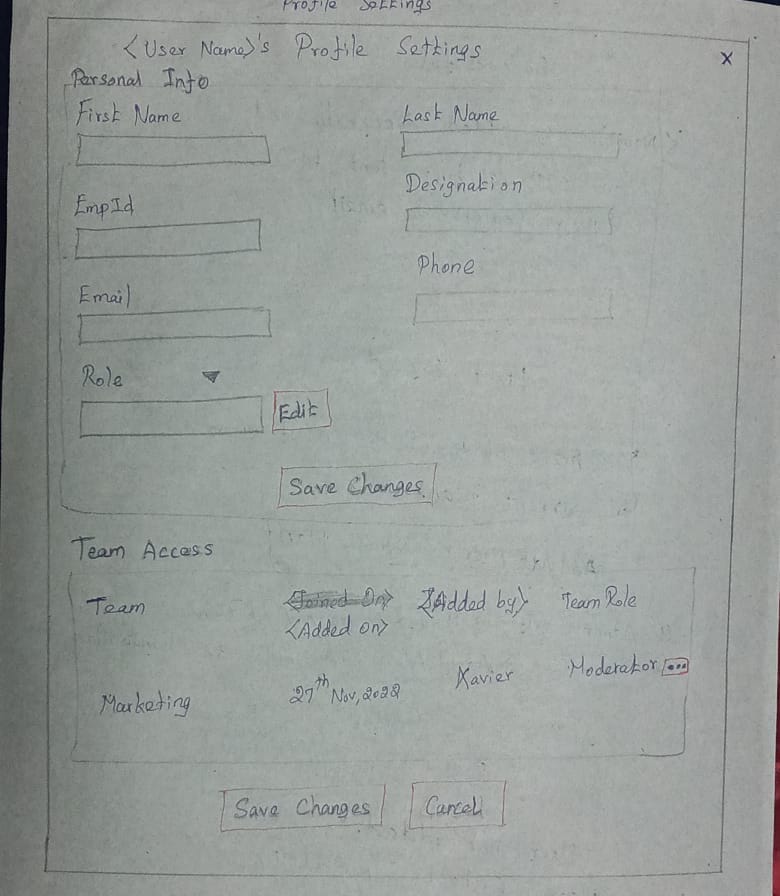 Profile Settings
<User Name>'s Profile Settings
X
Personal Info
First Name
Last Name
EmpId
Designation
Email
Phone
Role
Edit
Save Changes
Team Access
Team <Joined On> <Added by> Team Role
<Added on>
Marketing 27th Nov, 2022 Xavier Moderator ...
Save Changes Cancel